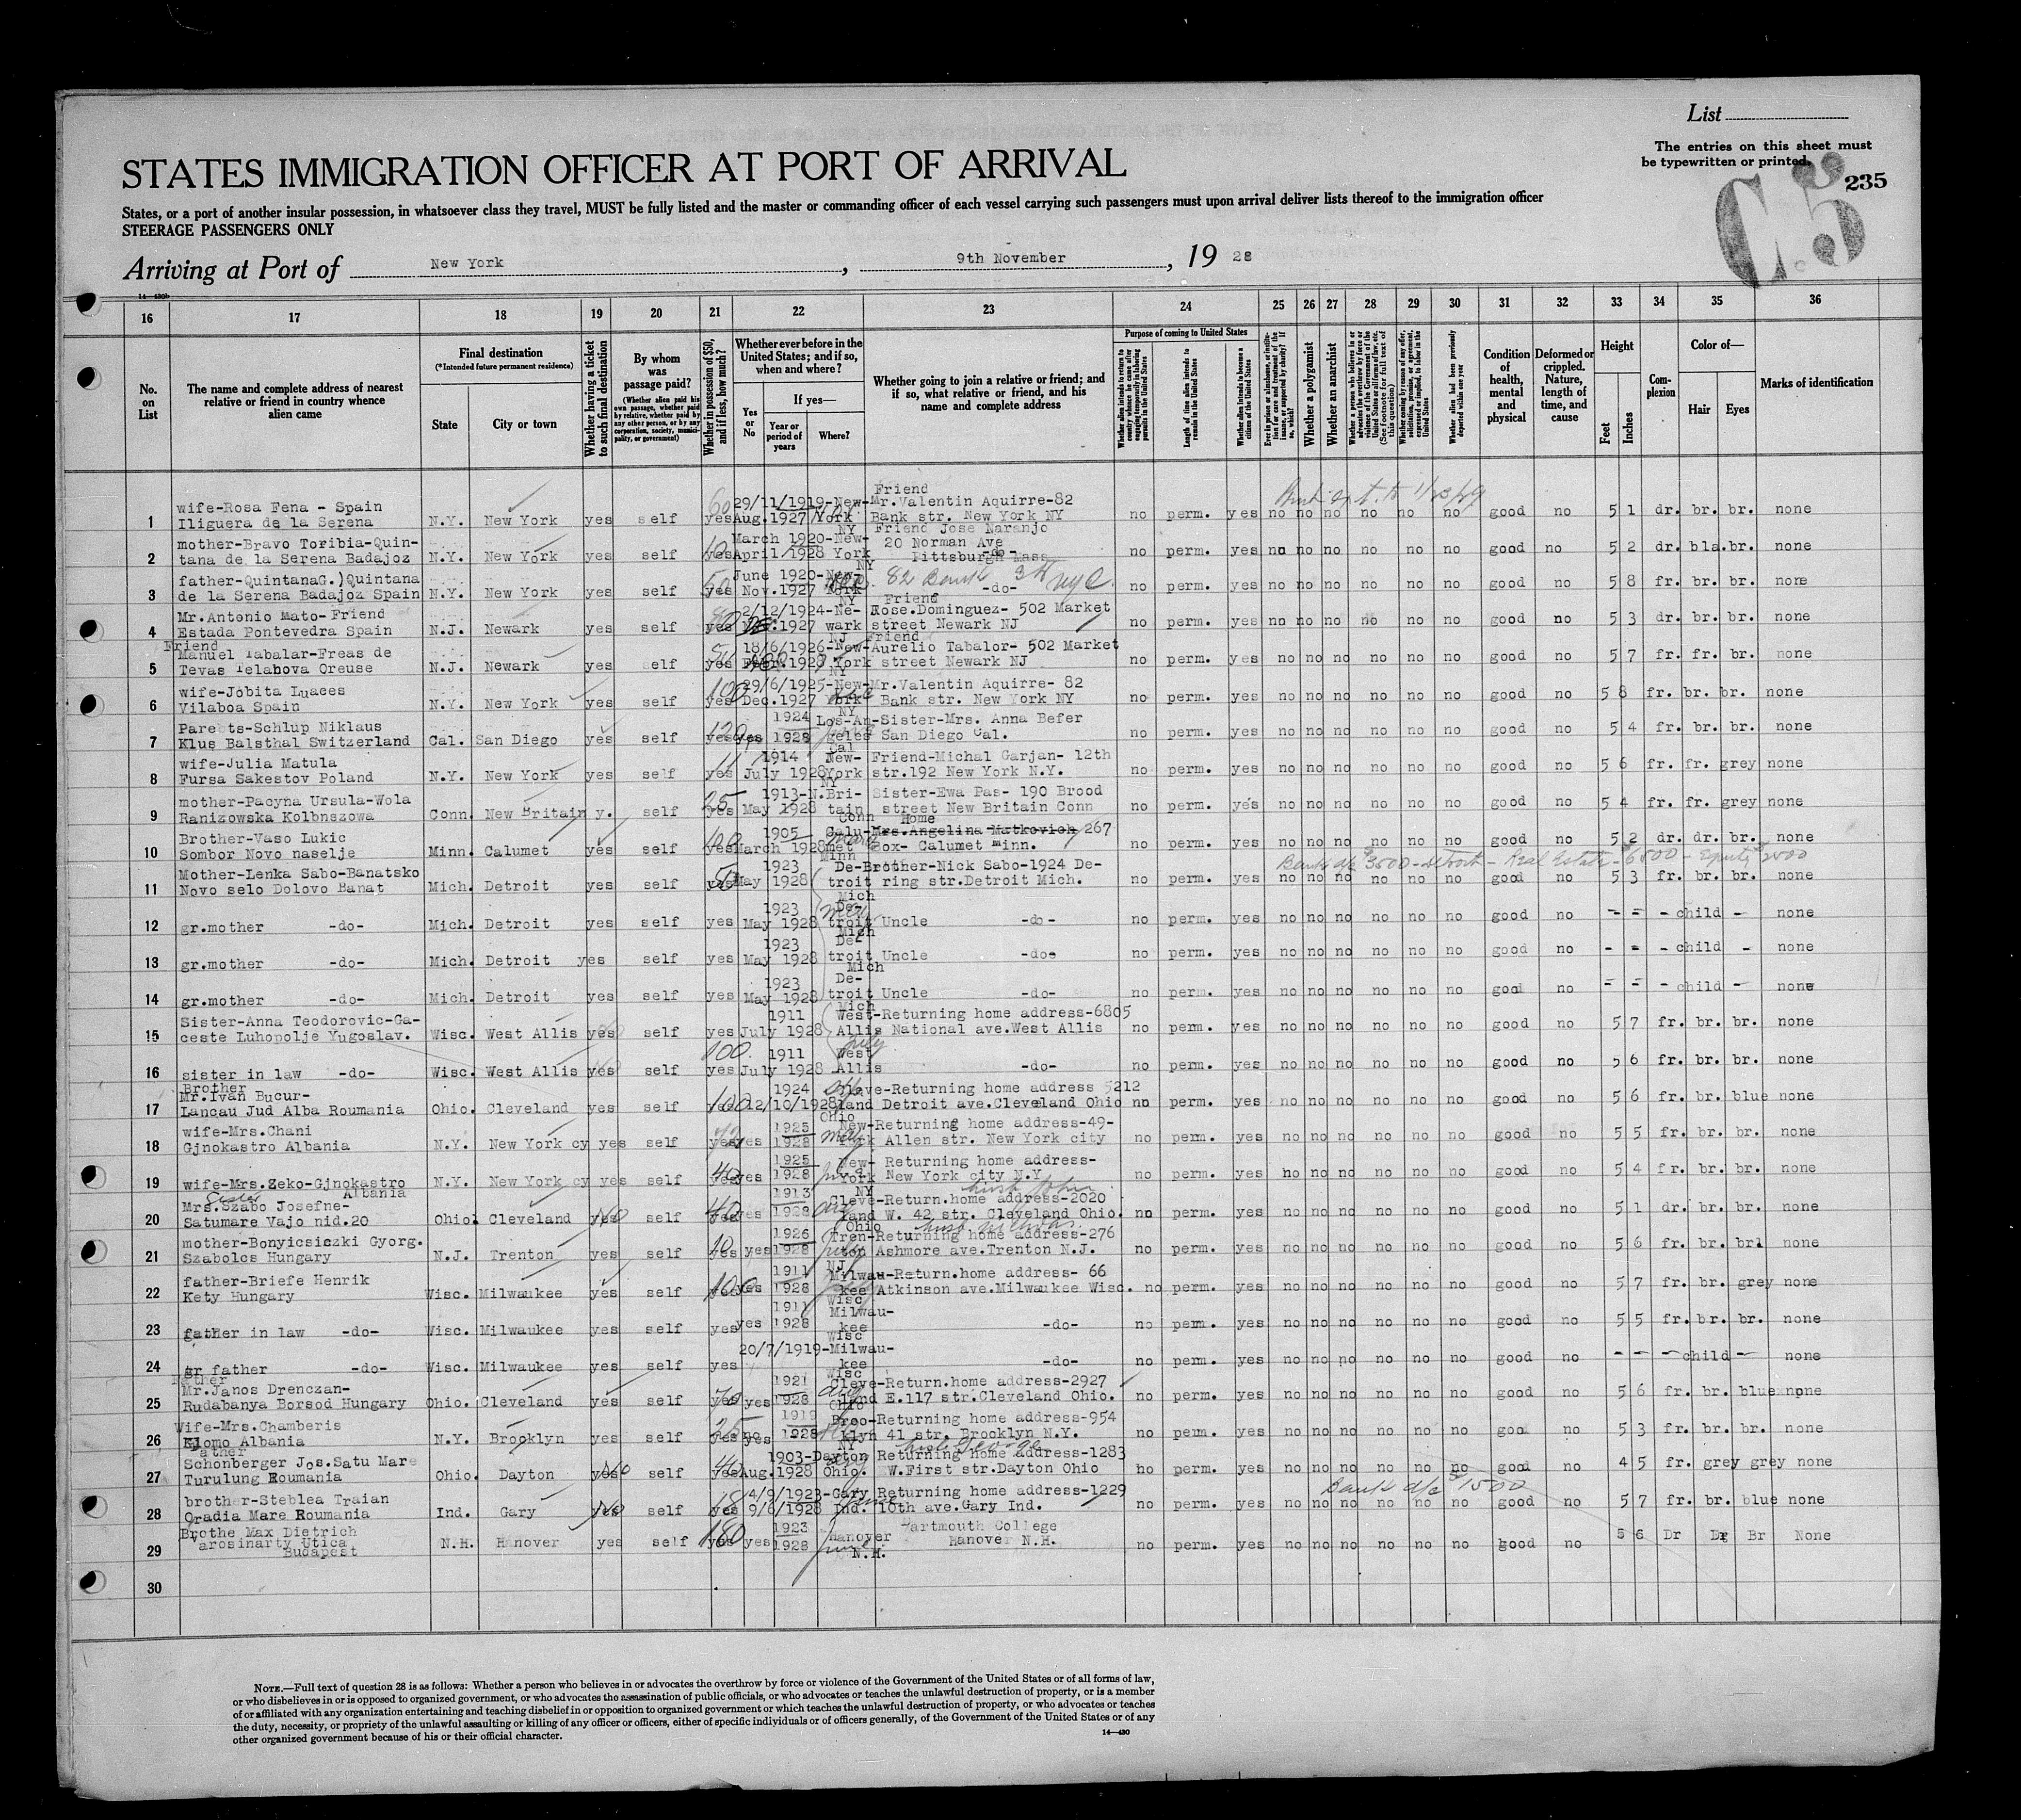 List
The entries on this sheet must
be typewritten or printed.
235
C.5
STATES IMMIGRATION OFFICER AT PORT OF ARRIVAL
States, or a port of another insular possession, in whatsoever class they travel, MUST be fully listed and the master or commanding officer of each vessel carrying such passengers must upon arrival deliver lists thereof to the immigration officer
STEERAGE PASSENGERS ONLY
Arriving at Port of New York, 9th November, 19 28
14—430b
16 17 18 19 20 21 22 23 24 25 26 27 28 29 30 31 32 33 34 35 36
No. on List
The name and complete address of nearest relative or friend in country whence alien came
Final destination
(*Intended future permanent residence)
State
City or town
Whether having a ticket to such final destination
By whom was passage paid?
(Whether alien paid his own passage, whether paid by relative, whether paid by any other person, or by any corporation, society, municipality, or government)
Whether in possession of $50, and if less, how much?
Whether ever before in the United States; and if so, when and where?
Yes or No
If yes—
Year or period of years
Where?
Whether going to join a relative or friend; and if so, what relative or friend, and his name and complete address
Purpose of coming to United States
Whether alien intends to return to country whence he came after engaging temporarily in laboring pursuits in the United States
Length of time alien intends to remain in the United States
Whether alien intends to become a citizen of the United States
Ever in prison or almshouse, or institution for care and treatment of the insane, or supported by charity? If so, which?
Whether a polygamist
Whether an anarchist
Whether a person who believes in or advocates the overthrow by force or violence of the Government of the United States or all forms of law, etc. (See footnote for full text of this question)
Whether coming by reason of any offer, solicitation, promise, or agreement, expressed or implied, to labor in the United States
Whether alien had been previously deported within one year
Condition of health, mental and physical
Deformed or crippled. Nature, length of time, and cause
Height
Feet
Inches
Complexion
Color of—
Hair
Eyes
Marks of identification
1 wife-Rosa Fena - Spain Iliguera de la Serena N.Y. New York yes self 60 yes 29/11/1919-New- Aug.1927 York NY Friend Mr.Valentin Aquirre-82 Bank str. New York NY no perm. yes no no no no no no good no 5 1 dr. br. br. none
2 mother-Bravo Toribia-Quintana de la Serena Badajoz N.Y. New York yes self yes March 1920-New- April 1928 York NY Friend Jose Naranjo 20 Norman Ave Pittsburgh Mass -do- no perm. yes no no no no no no good no 5 2 dr. bla. br. none
3 father-QuintanaG.)Quintana de la Serena Badajoz Spain N.Y. New York yes self 50 yes June 1920-New- Nov.1927 York NY 82 Bank St NYC. -do- no perm. yes no no no no no no good no 5 8 fr. br. br. none
4 Mr.Antonio Mato-Friend Estada Pontevedra Spain N.J. Newark yes self yes 2/12/1924-Ne- 1927 wark NJ Friend Rose.Dominguez- 502 Market street Newark NJ no perm. yes no no no no no no good no 5 3 dr. br. br. none
5 Friend Manuel Tabalar-Freas de Tevas Telahova Oreuse N.J. Newark yes self yes 18/6/1926-New- York NY Friend Aurelio Tabalor- 502 Market street Newark NJ no perm. yes no no no no no no good no 5 7 fr. fr. br. none
6 wife-Jobita Luaces Vilaboa Spain N.Y. New York yes self 100 yes 29/6/1925-New- Dec.1927 York NY Mr.Valentin Aquirre- 82 Bank str. New York NY no perm. yes no no no no no no good no 5 8 fr. br. br. none
7 Parents-Schlup Niklaus Klus Balsthal Switzerland Cal. San Diego yes self 120 yes yes 1924 1928 Los-Angeles Cal Sister-Mrs. Anna Befer San Diego Cal. no perm. yes no no no no no no good no 5 4 fr. br. br. none
8 wife-Julia Matula Fursa Sakestov Poland N.Y. New York yes self yes 1914 July 1928 New-York NY Friend-Michal Garjan- 12th str.192 New York N.Y. no perm. yes no no no no no no good no 5 6 fr. fr. grey none
9 mother-Pacyna Ursula-Wola Ranizowska Kolbnszowa Conn. New Britain y. self 25 yes 1913-N.Bri- May 1928 tain Conn Sister-Ewa Pas- 190 Brood street New Britain Conn no perm. yes no no no no no no good no 5 4 fr. fr. grey none
10 Brother-Vaso Lukic Sombor Novo naselje Minn. Calumet yes self 100 yes 1905 March 1928 Calumet Minn Home Mrs.Angelina Matkovich 267 Box- Calumet Minn. no perm. yes no no no no no no good no 5 2 dr. dr. br. none
Bank a/c $3500 - Detroit - Real Estate - $6500 - Equity $2500
11 Mother-Lenka Sabo-Banatsko Novo selo Dolovo Banat Mich. Detroit yes self 50 yes 1923 May 1928 Detroit Mich Brother-Nick Sabo-1924 Dering str.Detroit Mich. no perm. yes no no no no no no good no 5 3 fr. br. br. none
12 gr.mother -do- Mich. Detroit yes self yes 1923 May 1928 Detroit Mich Uncle -do- no perm. yes no no no no no no good no - - - child - none
13 gr.mother -do- Mich. Detroit yes self yes 1923 May 1928 Detroit Mich Uncle -do- no perm. yes no no no no no no good no - - - child - none
14 gr.mother -do- Mich. Detroit yes self yes 1923 May 1928 Detroit Mich Uncle -do- no perm. yes no no no no no no good no - - - child - none
15 Sister-Anna Teodorovic-Gaceste Luhopolje Yugoslav. Wisc. West Allis yes self yes 1911 July 1928 West Allis Returning home address-6805 National ave.West Allis no perm. yes no no no no no no good no 5 7 fr. br. br. none
16 sister in law -do- Wisc. West Allis yes self 100. yes 1911 July 1928 West Allis July -do- no perm. yes no no no no no no good no 5 6 fr. br. br. none
17 Brother Mr.Ivan Bucur- Lancau Jud Alba Roumania Ohio. Cleveland yes self 100 yes 1924 12/10/1928 Cleveland Ohio Returning home address 5212 Detroit ave.Cleveland Ohio no perm. yes no no no no no no good no 5 6 fr. br. blue none
18 wife-Mrs.Chani Gjnokastro Albania N.Y. New York cy yes self yes yes 1925 1928 May New-York Returning home address-49- Allen str. New York city no perm. yes no no no no no no good no 5 5 fr. br. br. none
19 wife-Mrs.Zeko-Gjnokastro Albania N.Y. New York cy yes self 40 yes yes 1925 1928 New-York NY Returning home address- New York city N.Y. no perm. yes no no no no no no good no 5 4 fr. br. br. none
20 Sister Mrs.Szabo Josefne- Satumare Vajo nid.20 Ohio. Cleveland yes No self 40 yes yes 1913 1928 Aug Cleveland Ohio husb John Return.home address-2020 W. 42 str. Cleveland Ohio. no perm. yes no no no no no no good no 5 1 dr. br. br. none
21 mother-Bonyicsiszki Gyorg. Szabolcs Hungary N.J. Trenton yes self 10 yes yes 1926 1928 July Trenton NJ husb Nicholas Returning home address-276 Ashmore ave.Trenton N.J. no perm. yes no no no no no no good no 5 6 fr. br. brl none
22 father-Briefe Henrik Kety Hungary Wisc. Milwaukee yes self 100 yes yes 1911 1928 Milwaukee Wisc Return.home address- 66 Atkinson ave.Milwaukee Wisc. no perm. yes no no no no no no good no 5 7 fr. br. grey none
23 father in law -do- Wisc. Milwaukee yes self yes yes 1911 1928 Milwaukee Wisc -do- no perm. yes no no no no no no good no 5 5 fr. br. br. none
24 gr father -do- Wisc. Milwaukee yes self yes 20/7/1919-Milwaukee Wisc -do- no perm. yes no no no no no no good no - - - child - none
25 Father Mr.Janos Drenczan- Rudabanya Borsod Hungary Ohio. Cleveland yes self 70 yes yes 1921 1928 Aug Cleveland Ohio Return.home address-2927 E.117 str.Cleveland Ohio. no perm. yes no no no no no no good no 5 6 fr. br. blue none
26 Wife-Mrs.Chamberis Klomo Albania N.Y. Brooklyn yes self 25 yes yes 1919 1928 Brooklyn NY Returning home address-954 41 str. Brooklyn N.Y. no perm. yes no no no no no no good no 5 3 fr. br. br. none
27 Father Schonberger Jos.Satu Mare Turulung Roumania Ohio. Dayton yes No self yes 1903-Dayton Aug.1928 Ohio. husb George Returning home address-1283 W.First str.Dayton Ohio no perm. yes no no no no no no good no 4 5 fr. grey grey none
Bank a/c $1500
28 brother-Steblea Traian Oradia Mare Roumania Ind. Gary yes No self 18 yes 4/9/1923-Gary 9/6/1928 Ind. June Returning home address-1229 10th ave.Gary Ind. no perm. yes no no no no no no good no 5 7 fr. br. blue none
29 Brothe Max Dietrich arosinarty Utica Budapest N.H. Hanover yes self 180 yes yes 1923 1928 June Hanover N.H. Dartmouth College Hanover N.H. no perm. yes no no no no no no good no 5 6 Dr Dr Br None
30
NOTE.—Full text of question 28 is as follows: Whether a person who believes in or advocates the overthrow by force or violence of the Government of the United States or of all forms of law,
or who disbelieves in or is opposed to organized government, or who advocates the assassination of public officials, or who advocates or teaches the unlawful destruction of property, or is a member
of or affiliated with any organization entertaining and teaching disbelief in or opposition to organized government or which teaches the unlawful destruction of property, or who advocates or teaches
the duty, necessity, or propriety of the unlawful assaulting or killing of any officer or officers, either of specific individuals or of officers generally, of the Government of the United States or of any
other organized government because of his or their official character.
14—430